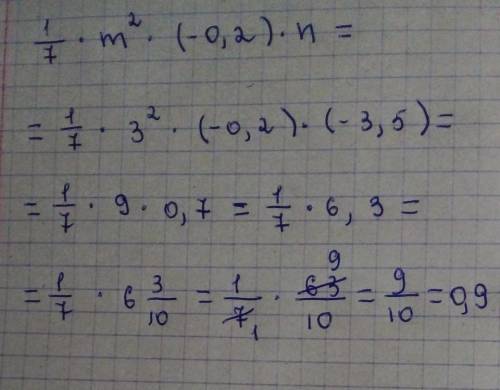 1/7 · m² · (-0,2) · n =
= 1/7 · 3² · (-0,2) · (-3,5) =
= 1/7 · 9 · 0,7 = 1/7 · 6,3 =
= 1/7 · 6 3/10 = 1/7 1 · 63 9/10 = 9/10 = 0,9